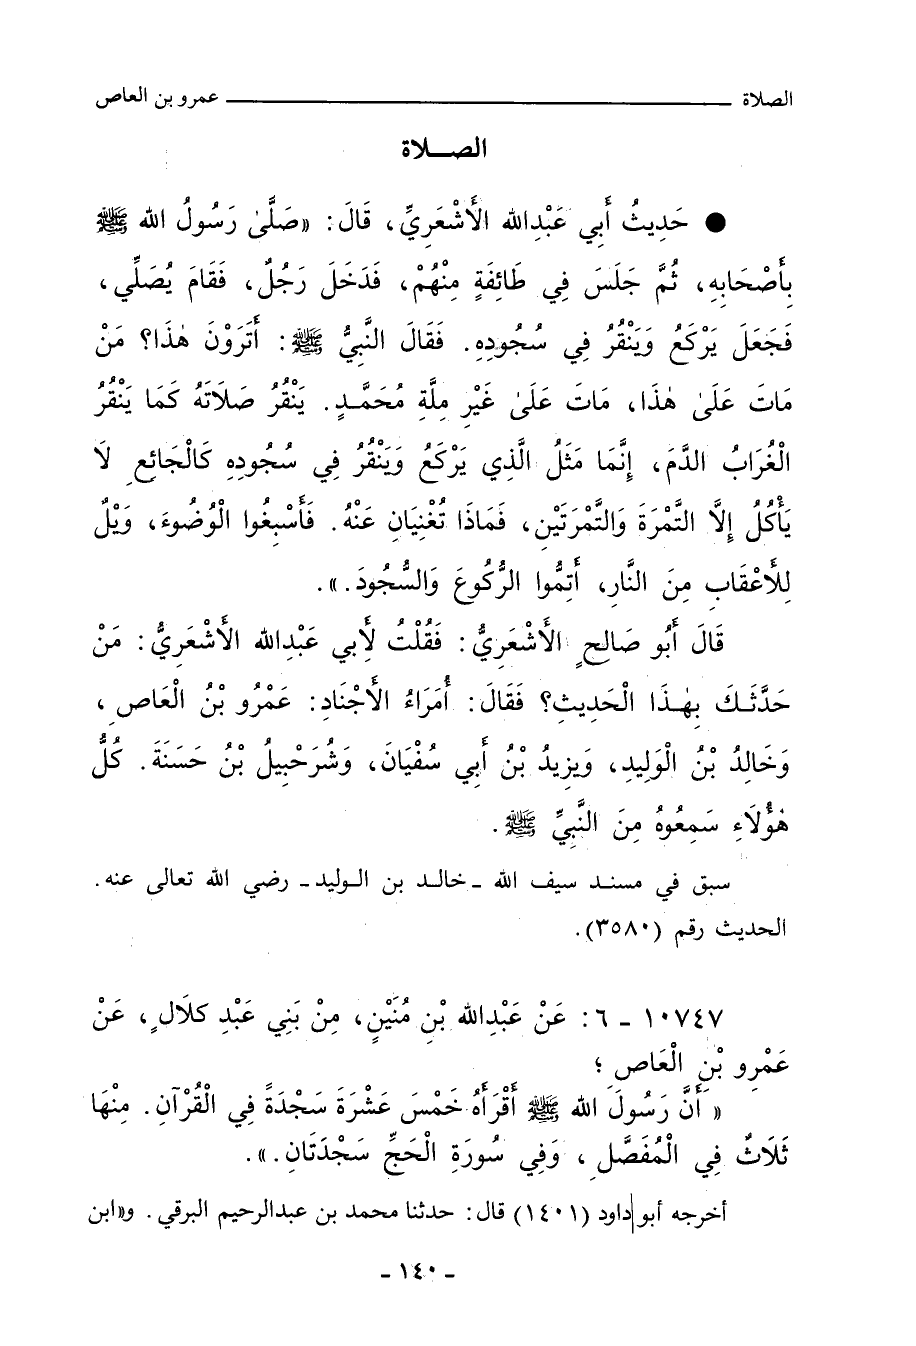 الصلاة ـــــــــ عمرو بن العاص
الصـــلاة
● حَدِيثُ أَبي عَبْدِالله الأَشْعَرِيِّ، قَالَ: «صَلَّىٰ رَسُولُ الله ﷺ
بِأَصْحَابِهِ، ثُمَّ جَلَسَ فِي طَائِفَةٍ مِنْهُمْ، فَدَخَلَ رَجُلٌ، فَقَامَ يُصَلِّي،
فَجَعَلَ يَرْكَعُ وَيَنْقُرُ فِي سُجُودِهِ. فَقَالَ النَّبِيُّ ﷺ: أَتَرَوْنَ هٰذَا؟ مَنْ
مَاتَ عَلَىٰ هٰذَا، مَاتَ عَلَىٰ غَيْرِ مِلَّةِ مُحَمَّدٍ. يَنْقُرُ صَلَاتَهُ كَمَا يَنْقُرُ
الْغُرَابُ الدَّمَ، إِنَّمَا مَثَلُ الَّذِي يَرْكَعُ وَيَنْقُرُ فِي سُجُودِهِ كَالْجَائِعِ لَا
يَأْكُلُ إِلَّا التَّمْرَةَ وَالتَّمْرَتَيْنِ، فَمَاذَا تُغْنِيَانِ عَنْهُ. فَأَسْبِغُوا الْوُضُوءَ، وَيْلٌ
لِلأَعْقَابِ مِنَ النَّارِ، أَتِمُّوا الرُّكُوعَ وَالسُّجُودَ.».
قَالَ أَبُو صَالِحٍ الأَشْعَرِيُّ: فَقُلْتُ لأَبِي عَبْدِالله الأَشْعَرِيُّ: مَنْ
حَدَّثَـكَ بِهٰـذَا الْحَدِيثِ؟ فَقَالَ: أُمَرَاءُ الأَجْنَادِ: عَمْرُو بْنُ الْعَاصِ،
وَخَالِدُ بْنُ الْوَلِيدِ، وَيَزِيدُ بْنُ أَبِي سُفْيَانَ، وَشُرَحْبِيلُ بْنُ حَسَنَةَ. كُلُّ
هٰؤُلَاءِ سَمِعُوهُ مِنَ النَّبِيِّ ﷺ.
سبق في مسند سيف الله ـ خالد بن الوليد ـ رضي الله تعالى عنه.
الحديث رقم (٣٥٨٠).
١٠٧٤٧ ـ ٦: عَنْ عَبْدِالله بْنِ مُنَيْنٍ، مِنْ بَنِي عَبْدِ كلَالٍ، عَنْ
عَمْرِو بْنِ الْعَاصِ؛
« أَنَّ رَسُولَ الله ﷺ أَقْرَأَهُ خَمْسَ عَشْرَةَ سَجْدَةً فِي الْقُرْآنِ. مِنْهَا
ثَلَاثٌ فِي الْمُفَصَّلِ، وَفِي سُورَةِ الْحَجِّ سَجْدَتَانِ.».
أخرجه أبو داود (١٤٠١) قال: حدثنا محمد بن عبدالرحيم البرقي. و«ابن
ـ ١٤٠ ـ